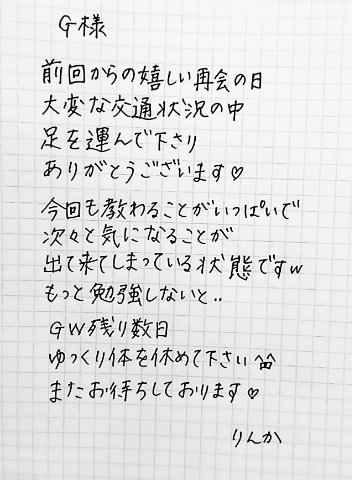 G様
前回からの嬉しい再会の日
大変な交通状況の中
足を運んで下さり
ありがとうございます♡
今回も教わることがいっぱいで
次々と気になることが
出て来てしまっている状態ですw
もっと勉強しないと..
GW残り数日
ゆっくり体を休めて下さい^^
またお待ちしております♡
りんか